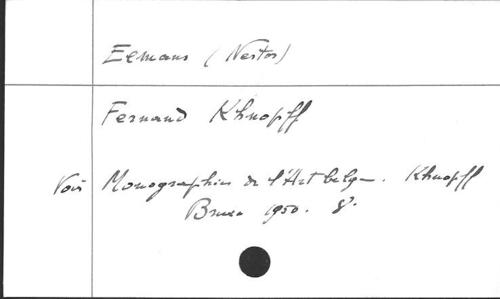 Eemans (Nestor)
Fernand Khnopff
Voir Monographies de l'Art belge. Khnopff
Brux. 1950. 8°.